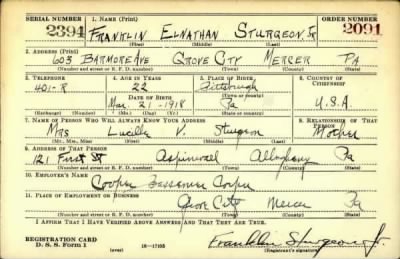 SERIAL NUMBER 1. NAME (Print) ORDER NUMBER
2394 FRANKLIN ELNATHAN STURGEON, Jr 2091
(First) (Middle) (Last)
2. ADDRESS (Print)
603 BARMORE AVE GROVE CITY MERCER PA
(Number and street or R. F. D. number) (Town) (County) (State)
3. TELEPHONE 4. AGE IN YEARS 5. PLACE OF BIRTH 6. COUNTRY OF CITIZENSHIP
401-R 22 Pittsburgh
DATE OF BIRTH (Town or county)
Mar. 21-1918 Pa U.S.A.
(Exchange) (Number) (Mo.) (Day) (Yr.) (State or country)
7. NAME OF PERSON WHO WILL ALWAYS KNOW YOUR ADDRESS 8. RELATIONSHIP OF THAT PERSON
Mrs Lucille V. Sturgeon Mother
(Mr., Mrs., Miss) (First) (Middle) (Last)
9. ADDRESS OF THAT PERSON
121 First St Aspinwall Allegheny Pa
(Number and street or R. F. D. number) (Town) (County) (State)
10. EMPLOYER'S NAME
Cooper Bessemer Corp
11. PLACE OF EMPLOYMENT OR BUSINESS
Grove City Mercer Pa
(Number and street or R. F. D. number) (Town) (County) (State)
I AFFIRM THAT I HAVE VERIFIED ABOVE ANSWERS AND THAT THEY ARE TRUE.
REGISTRATION CARD
D. S. S. Form 1 (over) 16—17105 Franklin Sturgeon Jr.
(Registrant's signature)